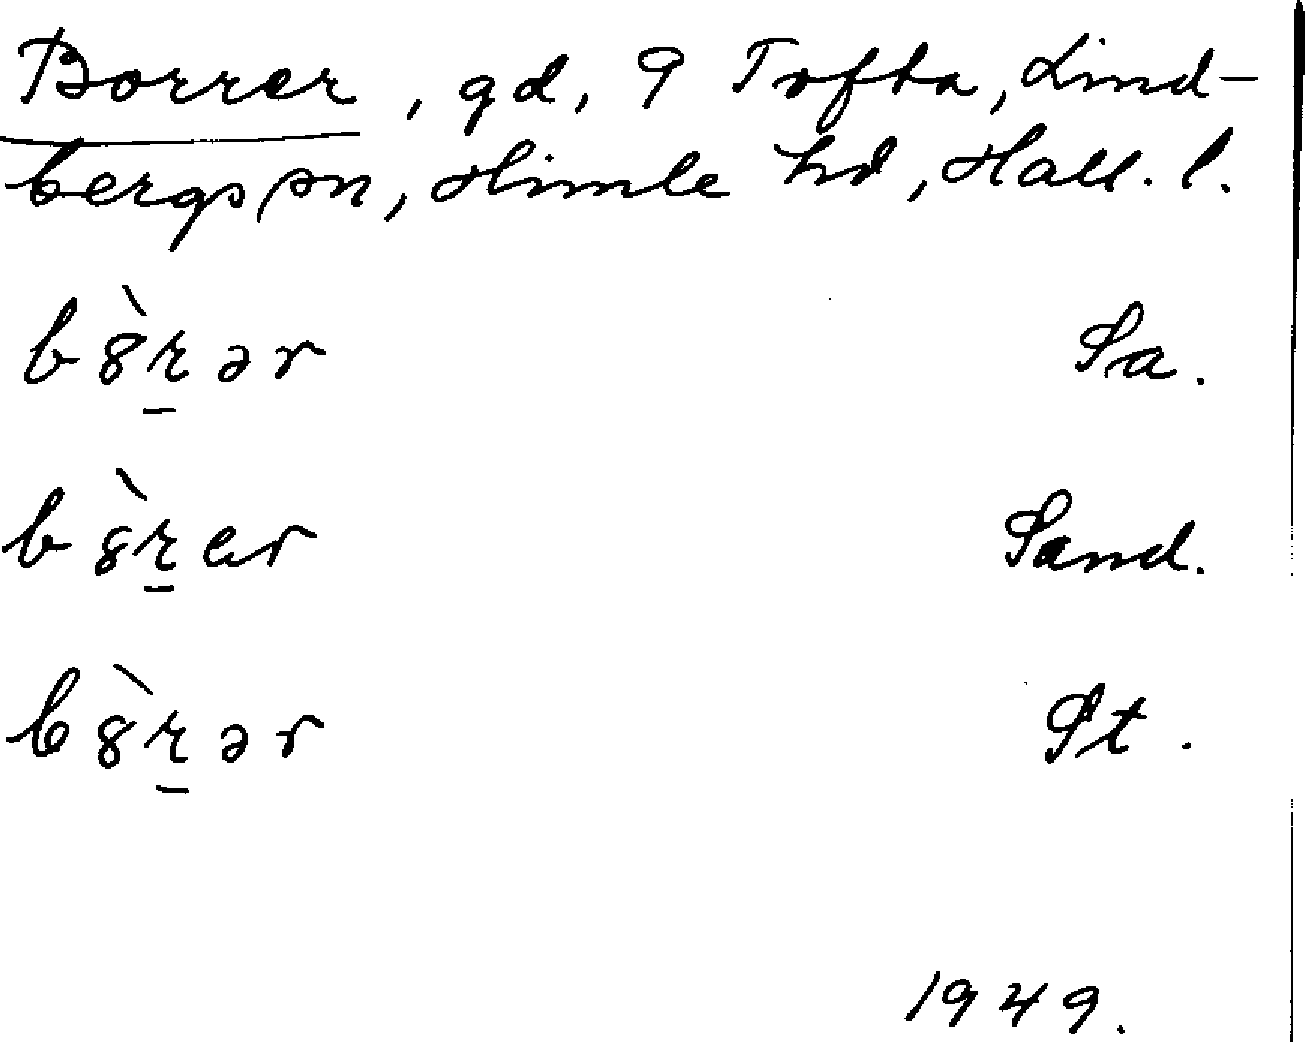 Borrer, gd, 9 Tofta, Lind-
bergs sn, Himle hd, Hall. l.
b8̀r̠ər Sa.
b8̀r̠er Sand.
b8̀r̠ər St.
1949.